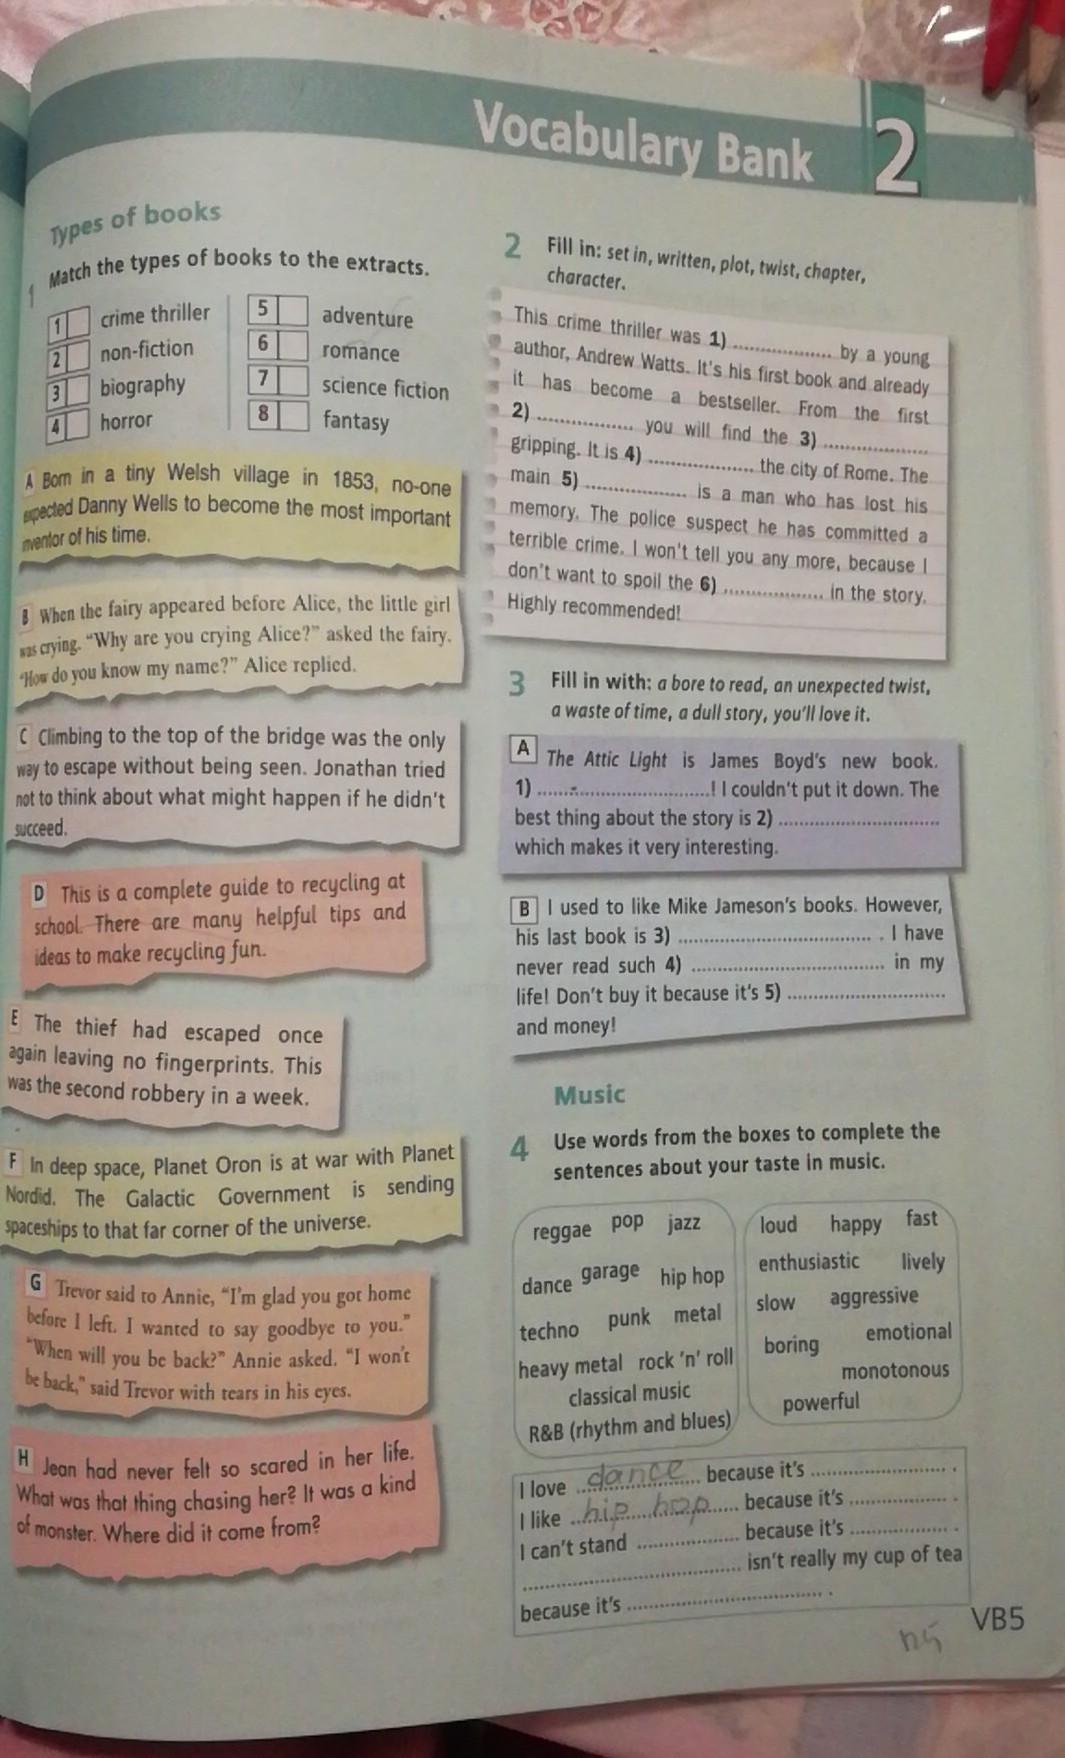 Vocabulary Bank 2
Types of books
1 Match the types of books to the extracts.
1 crime thriller
2 non-fiction
3 biography
4 horror
5 adventure
6 romance
7 science fiction
8 fantasy
A Born in a tiny Welsh village in 1853, no-one
expected Danny Wells to become the most important
inventor of his time.
B When the fairy appeared before Alice, the little girl
was crying. “Why are you crying Alice?” asked the fairy.
“How do you know my name?” Alice replied.
C Climbing to the top of the bridge was the only
way to escape without being seen. Jonathan tried
not to think about what might happen if he didn't
succeed.
D This is a complete guide to recycling at
school. There are many helpful tips and
ideas to make recycling fun.
E The thief had escaped once
again leaving no fingerprints. This
was the second robbery in a week.
F In deep space, Planet Oron is at war with Planet
Nordid. The Galactic Government is sending
spaceships to that far corner of the universe.
G Trevor said to Annie, “I'm glad you got home
before I left. I wanted to say goodbye to you.”
“When will you be back?” Annie asked. “I won't
be back,” said Trevor with tears in his eyes.
H Jean had never felt so scared in her life.
What was that thing chasing her? It was a kind
of monster. Where did it come from?
2 Fill in: set in, written, plot, twist, chapter,
character.
This crime thriller was 1) .................. by a young
author, Andrew Watts. It's his first book and already
it has become a bestseller. From the first
2) .................. you will find the 3) ..................
gripping. It is 4) .................. the city of Rome. The
main 5) .................. is a man who has lost his
memory. The police suspect he has committed a
terrible crime. I won't tell you any more, because I
don't want to spoil the 6) .................. in the story.
Highly recommended!
3 Fill in with: a bore to read, an unexpected twist,
a waste of time, a dull story, you'll love it.
A The Attic Light is James Boyd's new book.
1) ..................................! I couldn't put it down. The
best thing about the story is 2) ..............................
which makes it very interesting.
B I used to like Mike Jameson's books. However,
his last book is 3) .................................... . I have
never read such 4) .................................... in my
life! Don't buy it because it's 5) ..............................
and money!
Music
4 Use words from the boxes to complete the
sentences about your taste in music.
reggae pop jazz
dance garage hip hop
techno punk metal
heavy metal rock 'n' roll
classical music
R&B (rhythm and blues)
loud happy fast
enthusiastic lively
slow aggressive
boring emotional
monotonous
powerful
I love dance because it's .......................... .
I like hip hop because it's .................. .
I can't stand .................. because it's .................. .
........................................ isn't really my cup of tea
because it's .................................... .
VB5